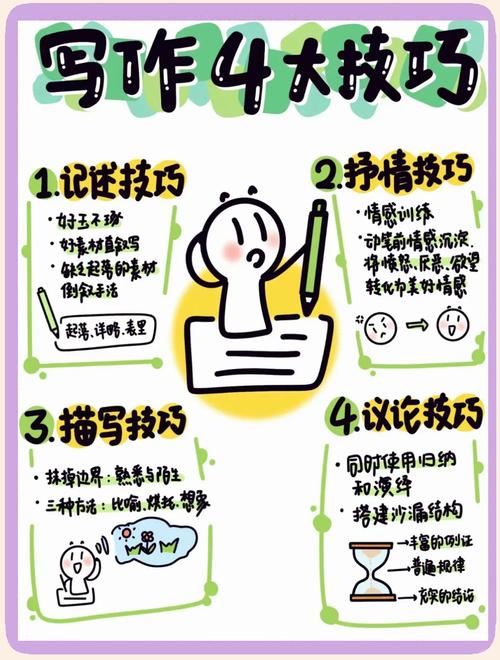 写作4大技巧
1.记述技巧
·好玉不琢
·好素材直叙写
·缺乏起落的素材
倒叙手法
起落、详略、表里
2.抒情技巧
·情感训练
·动笔前情感沉淀
将愤怒、厌恶、欲望
转化为美好情感
3.描写技巧
·抹掉边界：熟悉与陌生
·三种方法：比喻、烘托、想象
4.议论技巧
·同时使用归纳
和演绎
·搭建沙漏结构
丰富的例证
普遍规律
充实的结论